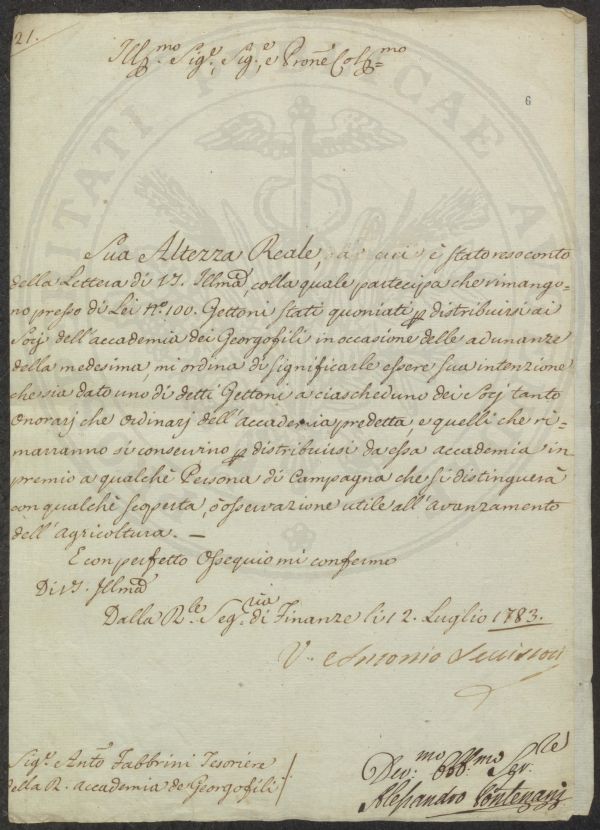 21.
Ill.mo Sig.e, Sig.e, e Pron.e Col.mo
6
Sua Altezza Reale, a cui è stato reso conto
della Lettera di VS. Illma, colla quale partecipa che rimango=
no presso di Lei No. 100. Gettoni stati quoniati p distribuirsi ai
Socj dell'accademia dei Georgofili in occasione delle adunanze
della medesima, mi ordina di significarle essere sua intenzione
che sia dato uno di detti Gettoni a ciascheduno dei Socj tanto
Onorarj che Ordinarj dell'Accademia predetta, e quelli che ri=
marranno si conservino p distribuirsi da essa accademia in
premio a qualchè Persona di Campagna che si distinguerà
con qualchè scoperta, o osservazione utile all'avanzamento
dell'Agricoltura. —
E con perfetto Ossequio mi confermo
Di VS. Illma
Dalla R.le Seg.ria di Finanze li 12. Luglio 1783.
V. Antonio
Sig.e Anto. Fabbrini Tesoriere
della R. Accademia de Georgofili
Dev:mo Obb:mo Ser:re
Alessandro Pontenani